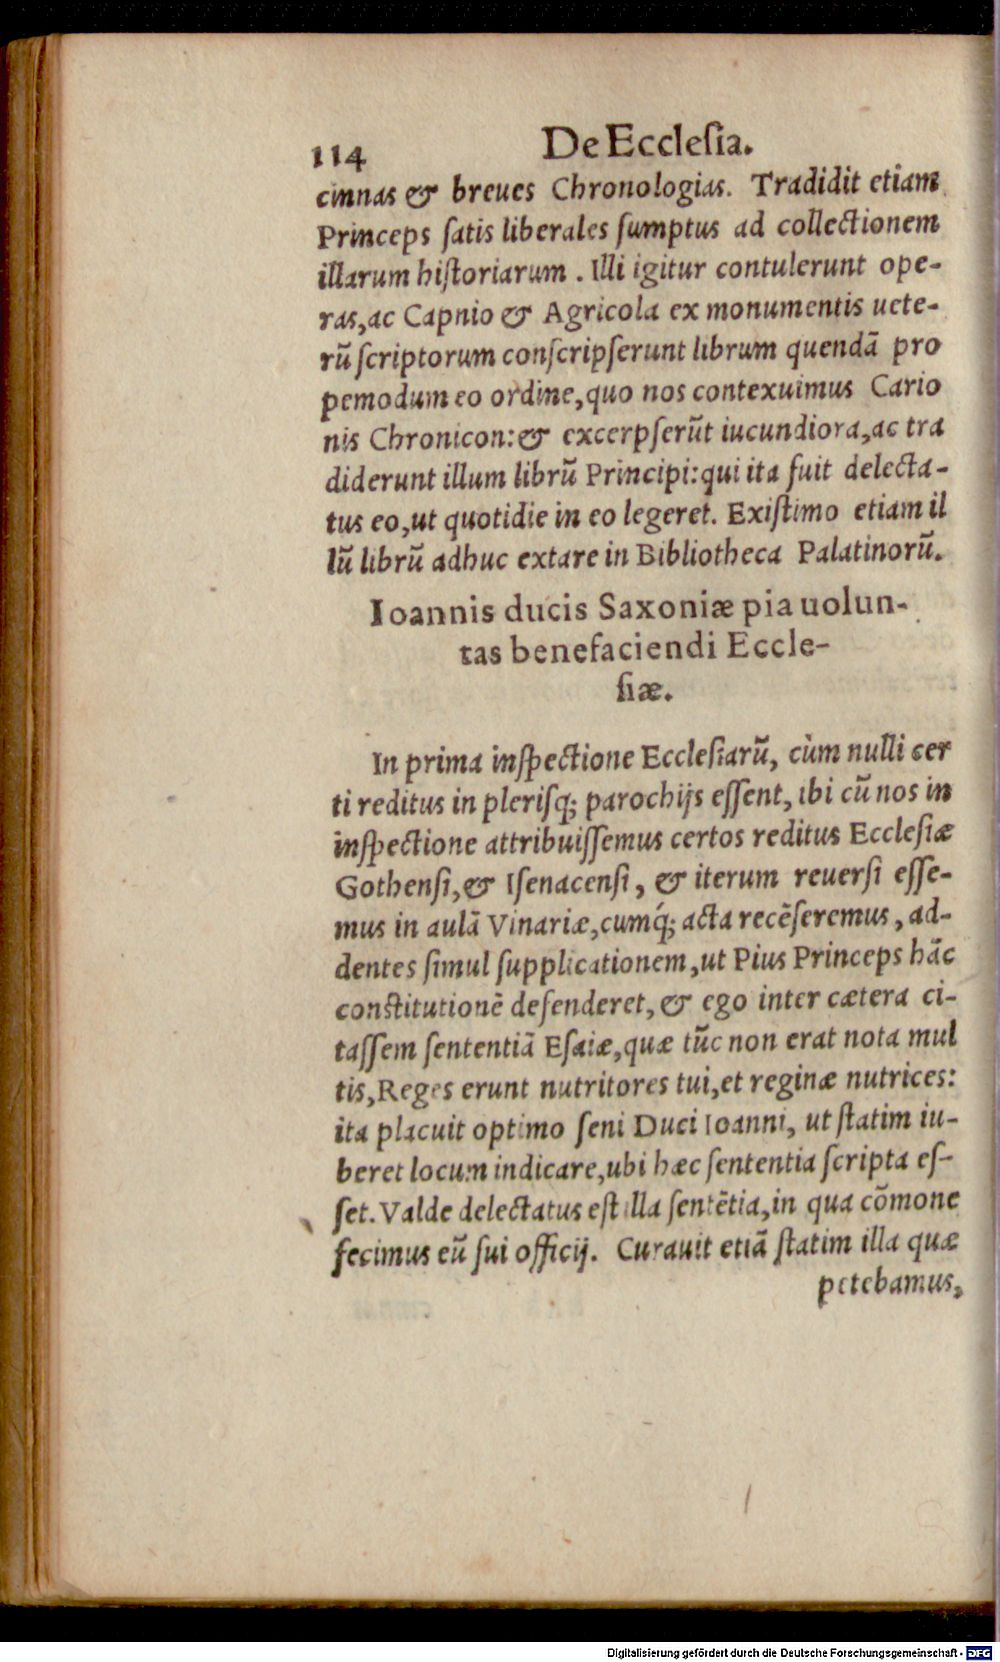 114 De Ecclesia.
cinnas & breues Chronologias. Tradidit etiam
Princeps ſatis liberales ſumptus ad collectionem
illarum hiſtoriarum. Illi igitur contulerunt ope-
ras, ac Capnio & Agricola ex monumentis uete-
rū ſcriptorum conſcripſerunt librum quendā pro
pemodum eo ordine, quo nos contexuimus Cario
nis Chronicon: & excerpſerūt iucundiora, ac tra
diderunt illum librū Principi: qui ita fuit delecta-
tus eo, ut quotidie in eo legeret. Exiſtimo etiam il
lū librū adhuc extare in Bibliotheca Palatinorū.
Ioannis ducis Saxoniæ pia uolun-
tas benefaciendi Eccle-
ſiæ.
In prima inſpectione Eccleſiarū, cùm nulli cer
ti reditus in pleriſq; parochijs eſſent, ibi cū nos in
inſpectione attribuiſſemus certos reditus Eccleſiæ
Gothenſi, & Iſenacenſi, & iterum reuerſi eſſe-
mus in aulā Vinariæ, cumq́; acta recēſeremus, ad-
dentes ſimul ſupplicationem, ut Pius Princeps hāc
conſtitutionē defenderet, & ego inter cætera ci-
taſſem ſententiā Eſaiæ, quæ tūc non erat nota mul
tis, Reges erunt nutritores tui, et reginæ nutrices:
ita placuit optimo ſeni Duci Ioanni, ut ſtatim iu-
beret locum indicare, ubi hæc ſententia ſcripta eſ-
ſet. Valde delectatus eſt illa ſentētia, in qua cōmone
fecimus eū ſui officij. Curauit etiā ſtatim illa quæ
petebamus,
Digitalisierung gefördert durch die Deutsche Forschungsgemeinschaft - DFG